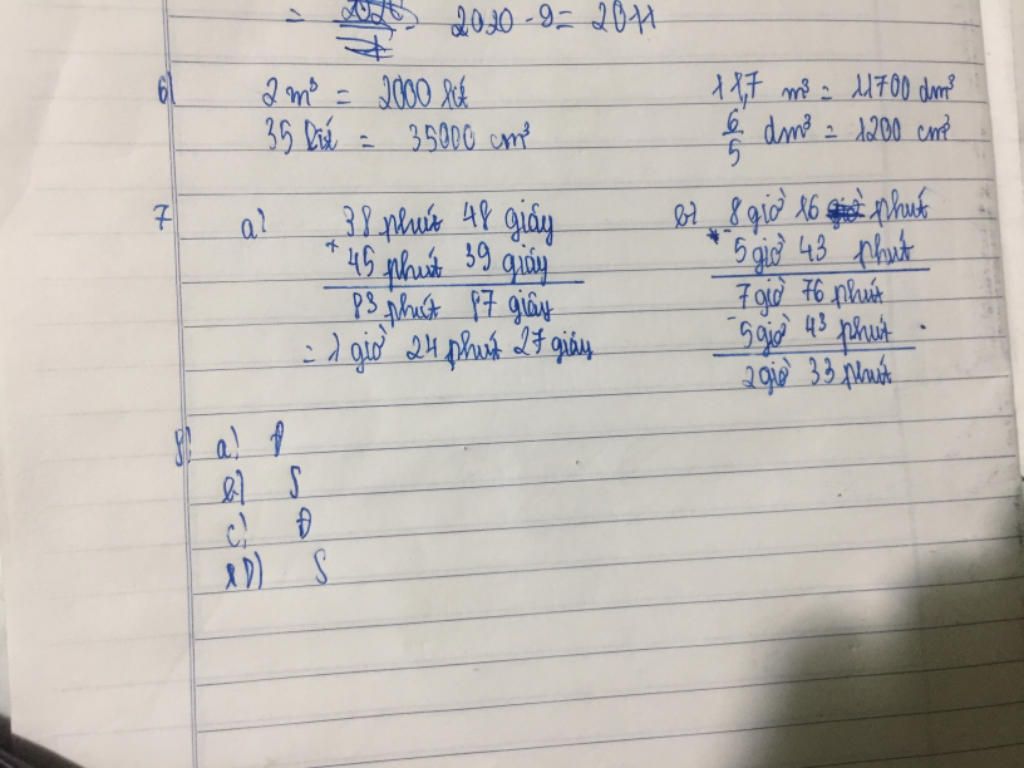 = 2020 - 9 = 2011
6) 2 m³ = 2000 lít 11,7 m³ = 11700 dm³
35 lít = 35000 cm³ 6/5 dm³ = 1200 cm³
7 a) 38 phút 48 giây b) 8 giờ 16 phút
+ 45 phút 39 giây - 5 giờ 43 phút
83 phút 87 giây 7 giờ 76 phút
= 1 giờ 24 phút 27 giây - 5 giờ 43 phút
2 giờ 33 phút
8) a) Đ
b) S
c) Đ
D) S